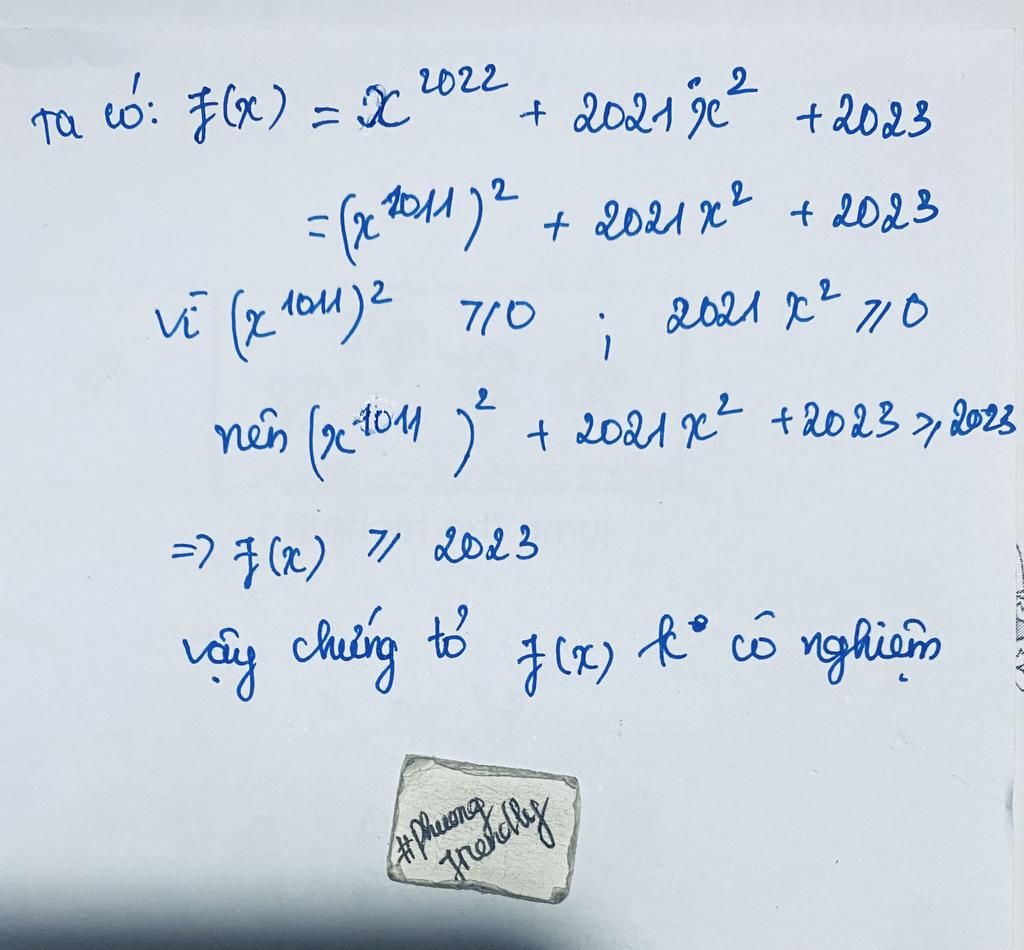 Ta có: f(x) = x^2022 + 2021x^2 + 2023
= (x^1011)^2 + 2021x^2 + 2023
Vì (x^1011)^2 ⩾ 0 ; 2021x^2 ⩾ 0
nên (x^1011)^2 + 2021x^2 + 2023 ⩾ 2023
=> f(x) ⩾ 2023
vậy chứng tỏ f(x) k° có nghiệm
#Phuong
friendly